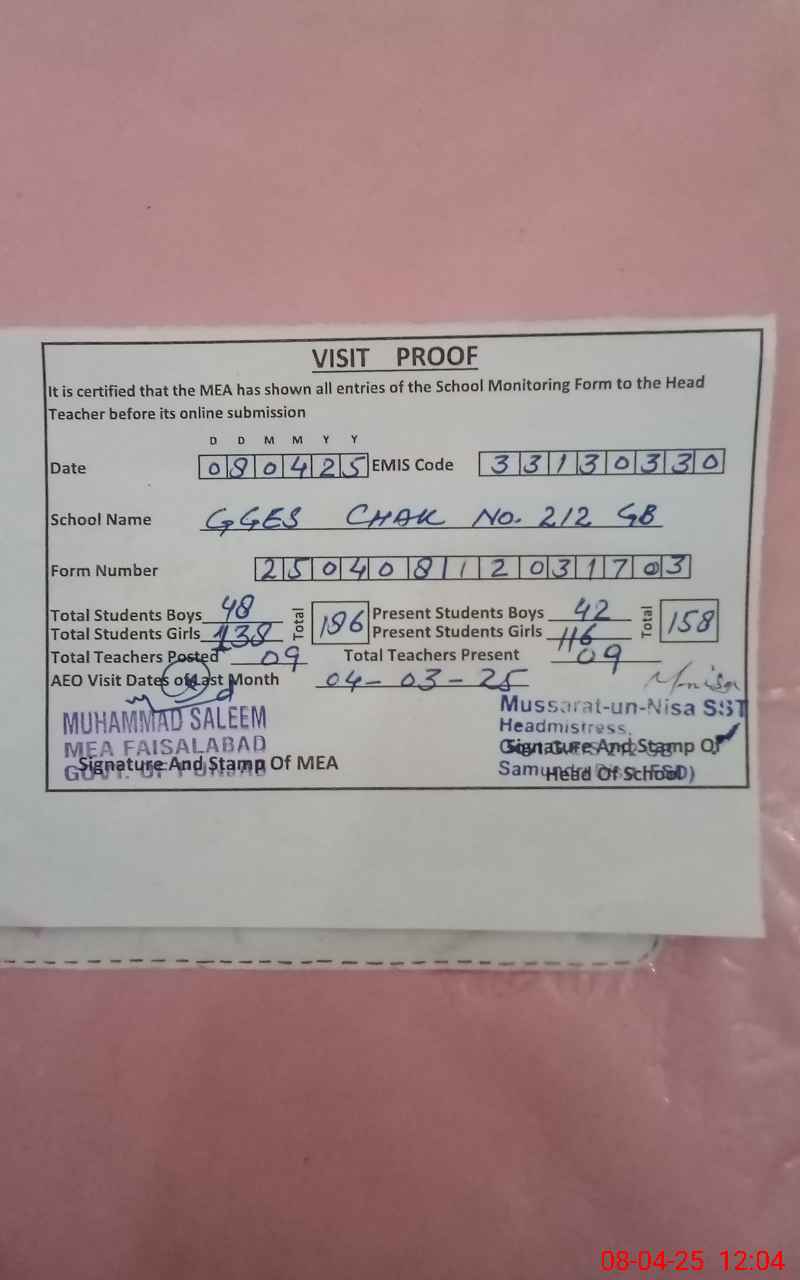 VISIT PROOF
It is certified that the MEA has shown all entries of the School Monitoring Form to the Head
Teacher before its online submission
D D M M Y Y
Date 080425 EMIS Code 33130330
School Name GGES CHAK NO. 212 GB
Form Number 250408112031703
Total Students Boys 48 Total 186 Present Students Boys 42 Total 158
Total Students Girls 138 Present Students Girls 116
Total Teachers Posted 09 Total Teachers Present 09
AEO Visit Dates of Last Month 04-03-25
MUHAMMAD SALEEM
MEA FAISALABAD
GOVT. OF PUNJAB
Signature And Stamp Of MEA
Mussarat-un-Nisa SST
Headmistress,
Signature And Stamp Of
Head Of School
08-04-25 12:04